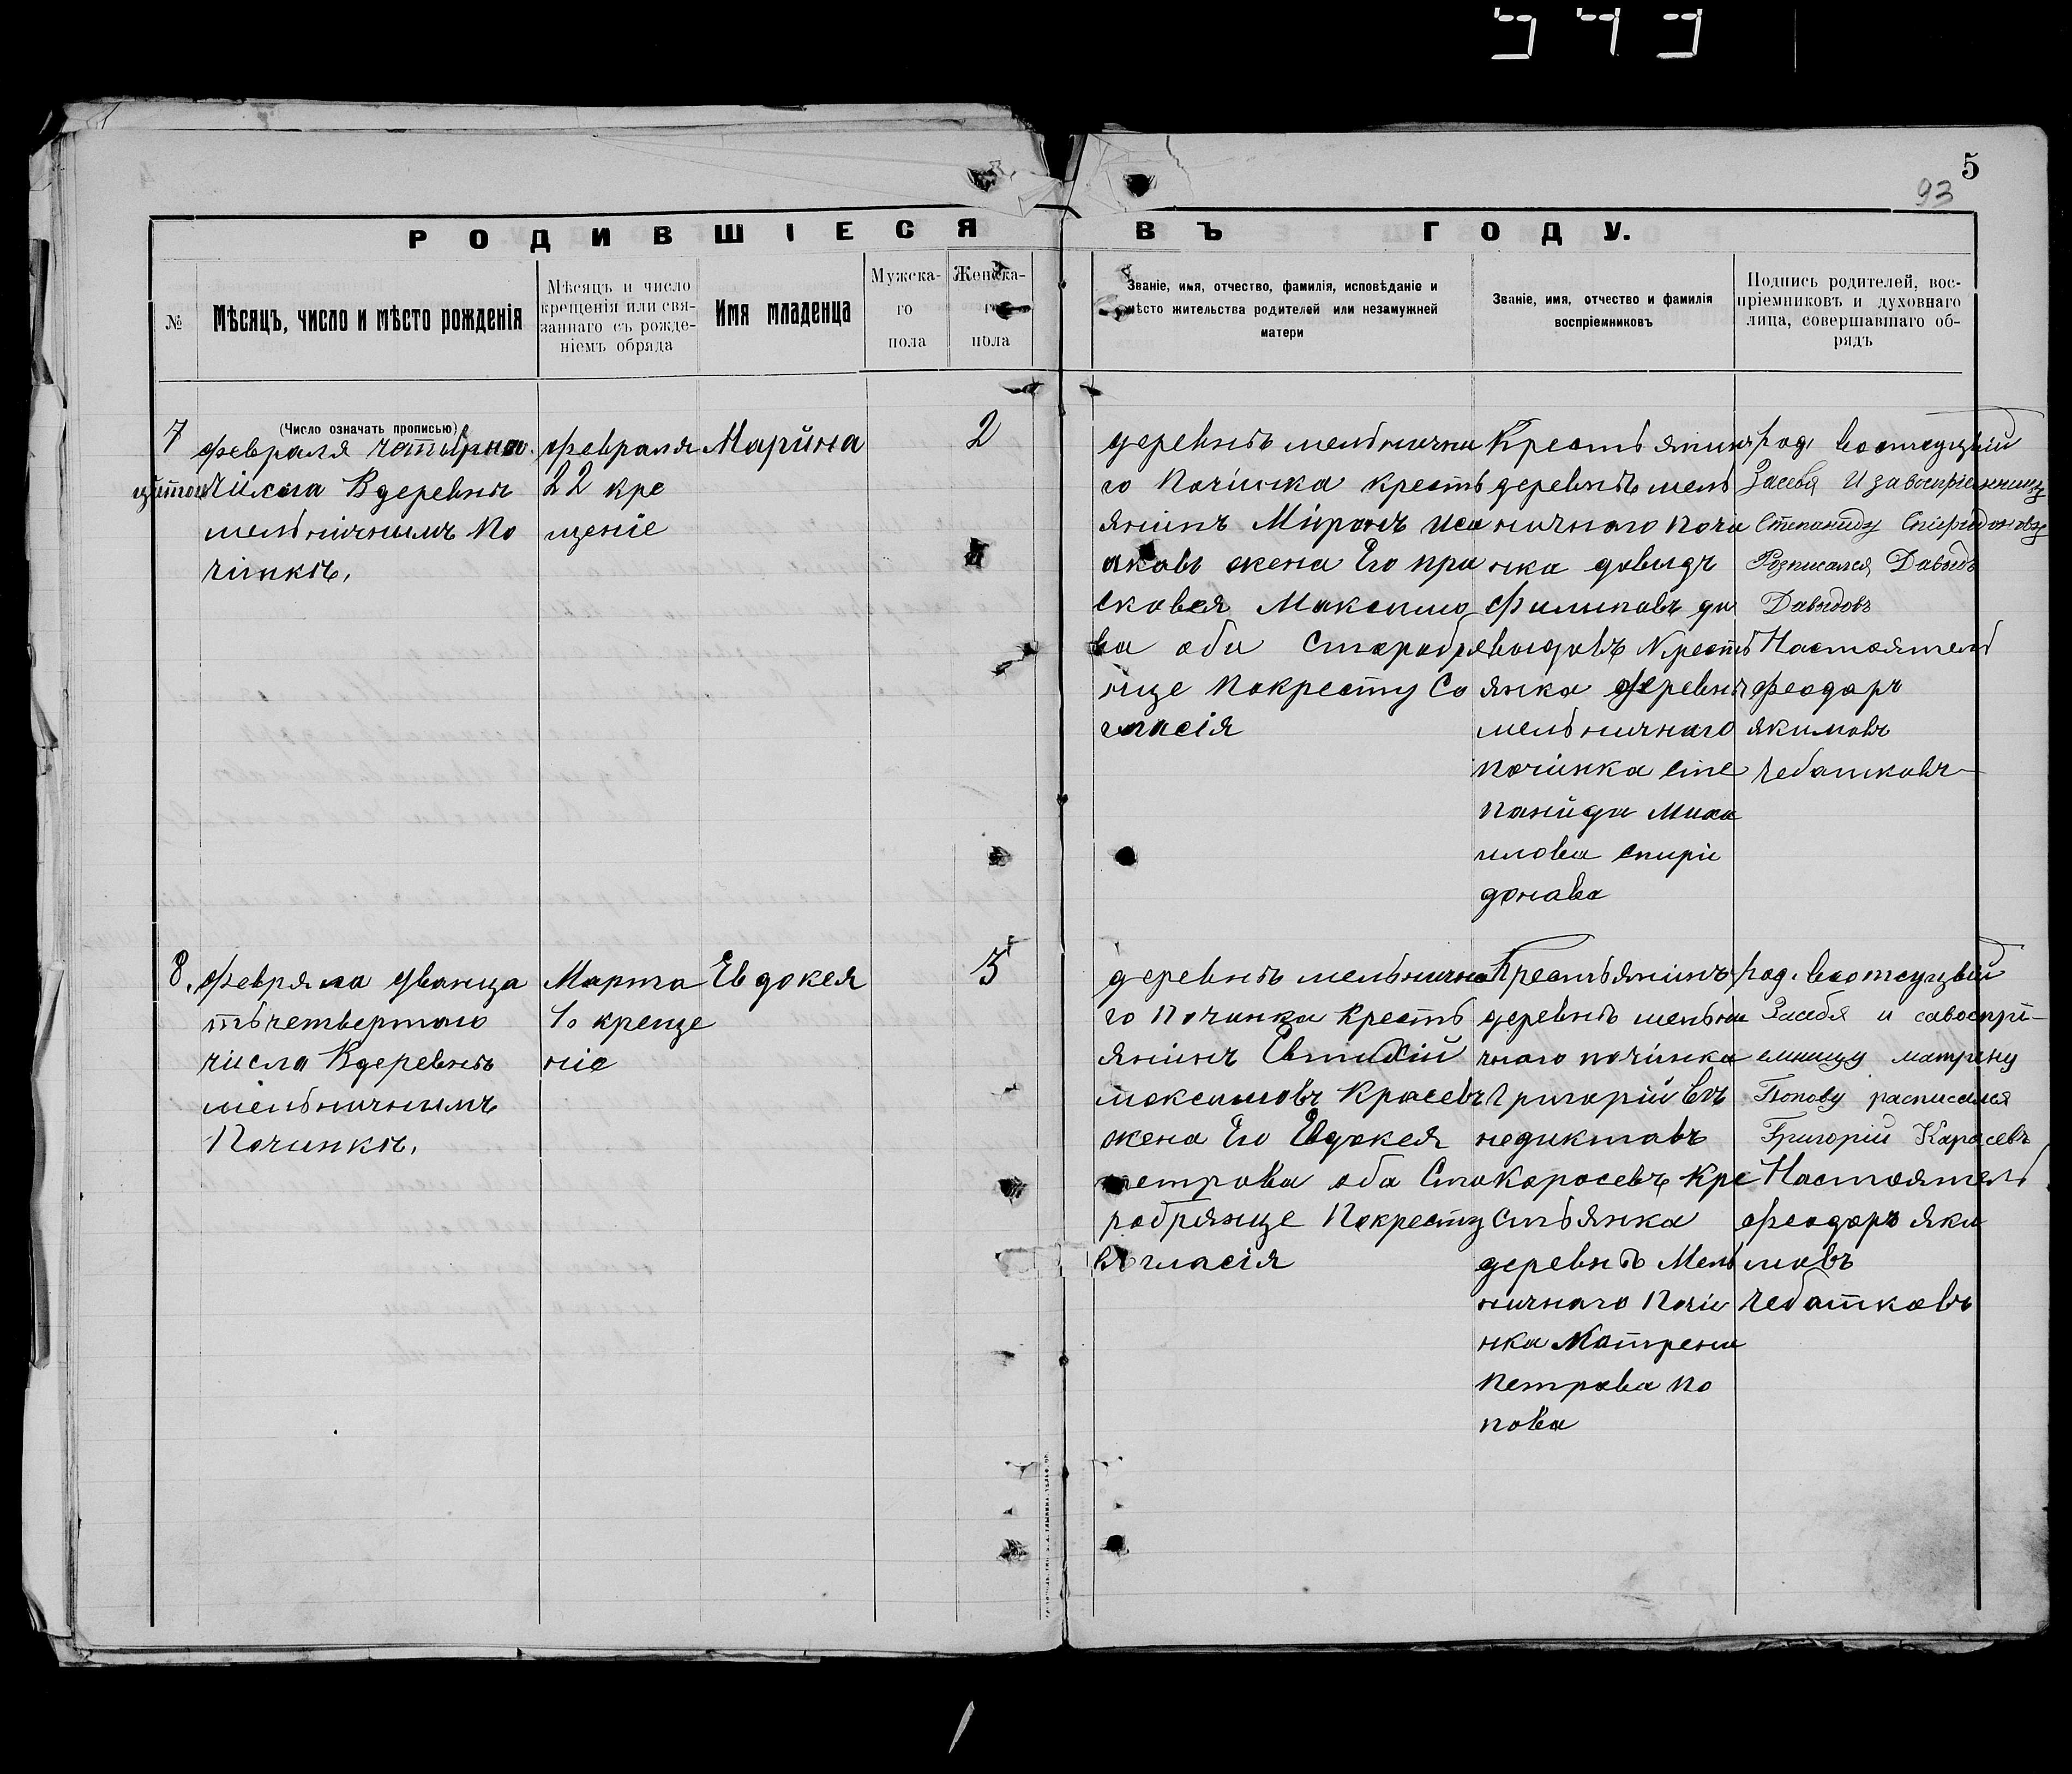 5
93
РОДИВШІЕСЯ ВЪ ГОДУ.
№
Мѣсяцъ, число и мѣсто рожденія
Мѣсяцъ и число
крещенія или свя-
заннаго съ рожде-
ніемъ обряда
Имя младенца
Мужска-
го
пола
Женска-
го
пола
Званіе, имя, отчество, фамилія, исповѣданіе и
мѣсто жительства родителей или незамужней
матери
Званіе, имя, отчество и фамилія
воспріемниковъ
Подпись родителей, вос-
пріемниковъ и духовнаго
лица, совершавшаго об-
рядъ
(Число означать прописью)
7
февраля четырна
цатои числа Вдеревнѣ
мельничнымъ По
чинкѣ,
февраля
22 кре
щеніе
Марина
2
деревнѣ мельнична
го Починка кресть
янинъ Миронъ Иса
аковъ жена Его пра
сковея Максимо
ва оби старобря
нце Покресту Со
гласія
Крестьянинъ
деревнѣ мель
ничного почи
нка довыдъ
Филиповъ да
выдовъ Кресть
янка деревнѣ
мельничнаго
починка сте
панида Миха
илова спири
донава
род. востсуцвій
Засебя И завоспріемницу
Степаниду Спиридонову
Розписался Давыдъ
Давыдовъ
Настоятель
феодаръ
якимовъ
чебатковъ
8.
февряла дванца
тьчетвертого
числа Вдеревнѣ
мельничнымъ
Починкѣ,
Марта
1о креще
ніе
Евдокея
3
деревнѣ мельнично
го Починка Кресть
янинъ Евтихій
максимовъ Красевъ
жена Его Евдокея
петрова оба Ста
робрянце Покресту
согласія
Крестьянинъ
деревнѣ мельни
чного починка
Григорій Ве
недиктавъ
Каросевъ Кре
стьянка
деревнѣ Мель
ничнаго Почи
нка Матрена
Петрова По
пова
род. востсуцвій
Засебя и савоспрі-
емницу матрену
Попову расписался
Григорій Карасевъ
Настоятель
феодаръ яки
мовъ
чебатковъ